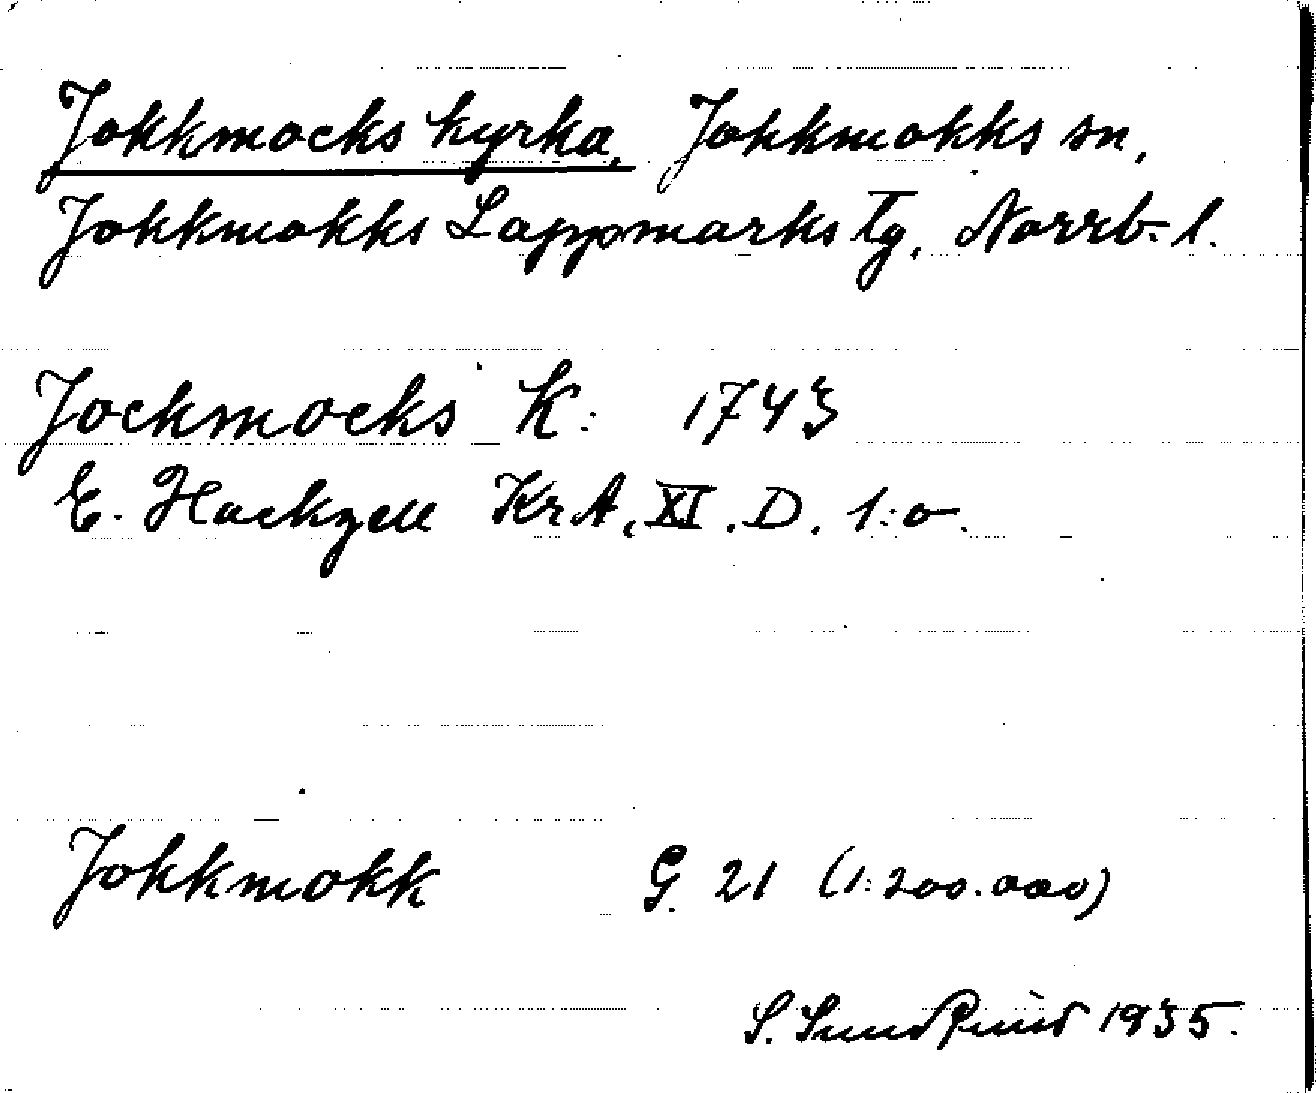 Jokkmocks kyrka, Jokkmokks sn,
Jokkmokks Lappmarks tg, Norrb. l.
Jockmocks K: 1743
E. Hackzell KrA, XI. D. 1:o.
Jokkmokk G. 21 (1:200.000)
S. Sundquist 1935.